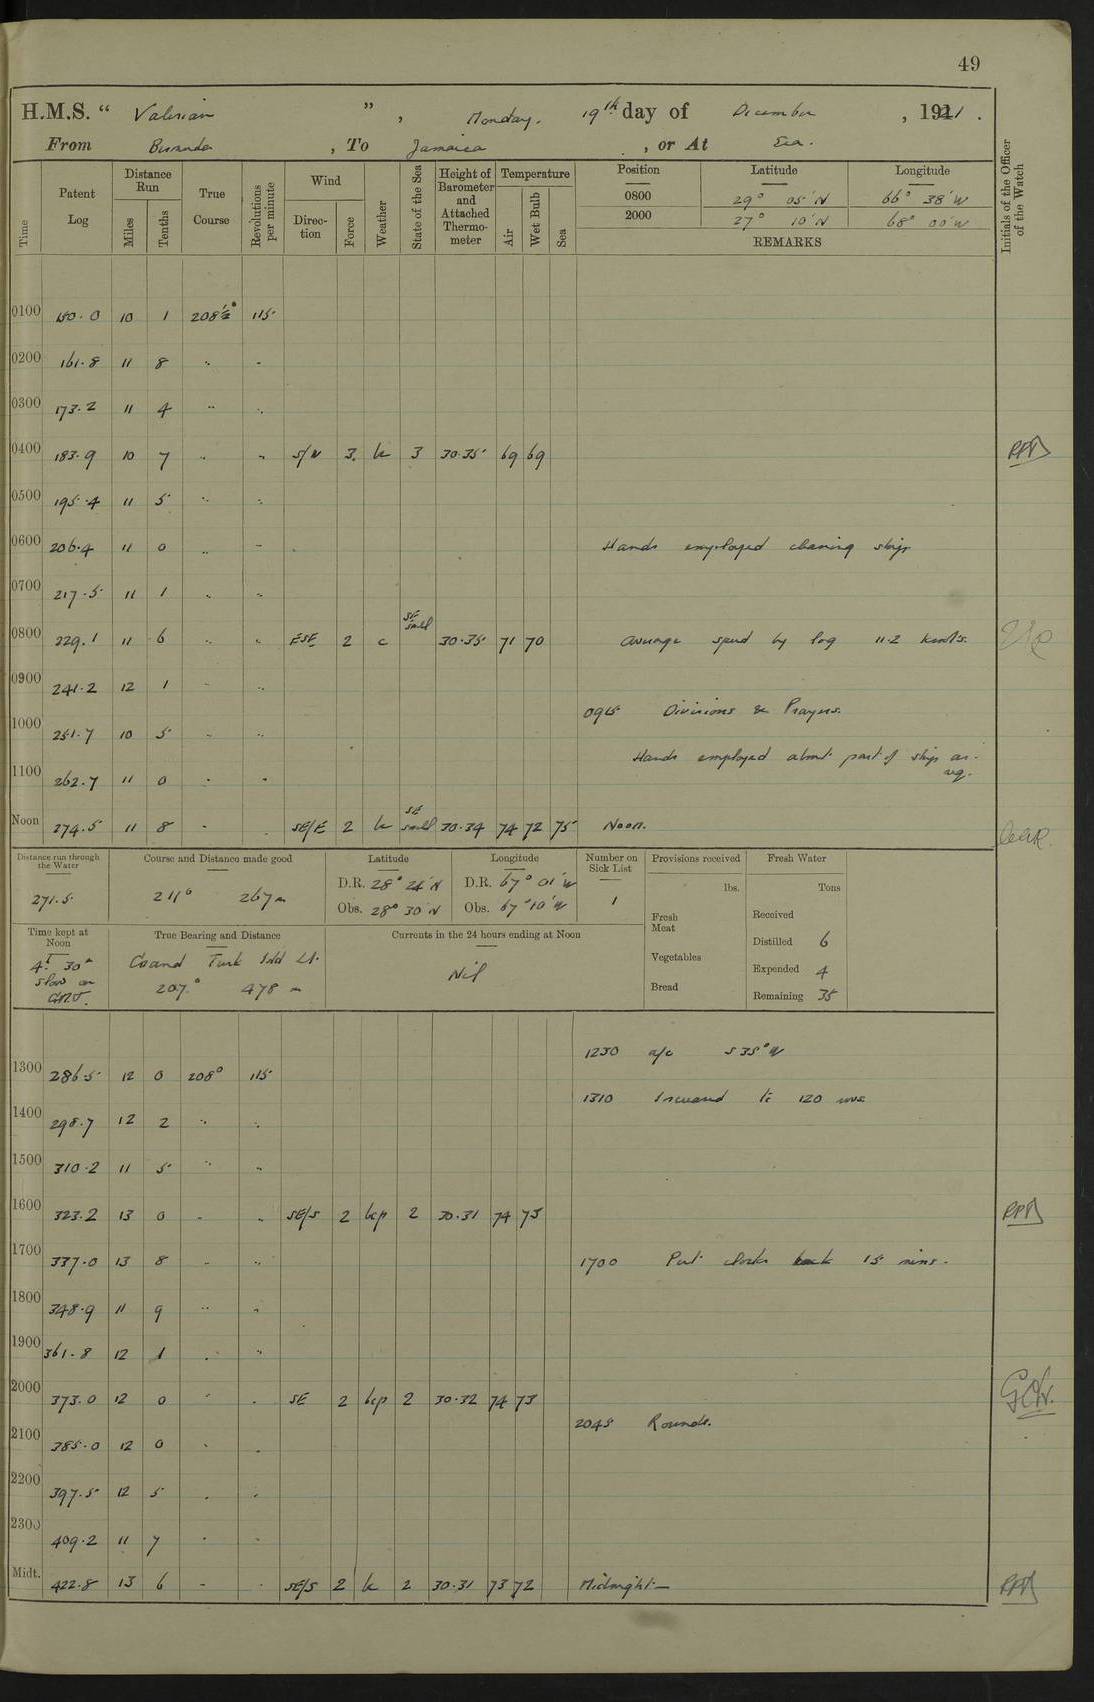 49
H.M.S. " Valerian ", Monday. 19th day of December, 1921.
From Bermuda, To Jamaica, or At Sea.
Time Patent Log Distance Run Miles Tenths True Course Revolutions per minute Wind Direction Force Weather State of the Sea Height of Barometer and Attached Thermometer Temperature Air Wet Bulb Sea Position Latitude Longitude Initials of the Officer of the Watch
0800 29° 05' N 66° 38' W
2000 27° 10' N 68° 00' W
REMARKS
0100 150.0 10 1 208½° 115
0200 161.8 11 8 " "
0300 173.2 11 4 " "
0400 183.9 10 7 " " 3 bc 3 30.35 69 69
0500 195.4 11 5 " "
0600 206.4 11 0 " " Hands employed cleaning ship
0700 217.5 11 1 " "
0800 229.1 11 6 " " ESE 2 c SE swell 30.35 71 70 average speed by log 11.2 knots.
0900 241.2 12 1 " "
0915 Divisions & Prayers.
1000 251.7 10 5 " "
Hands employed about part of ship as req.
1100 262.7 11 0 " "
Noon 274.5 11 8 " " SE/E 2 bc SE swell 30.34 74 72 75 Noon.
Distance run through the Water Course and Distance made good Latitude Longitude Number on Sick List Provisions received Fresh Water
271.5 211° 267m D.R. 28° 24' N D.R. 67° 01' W 1 lbs. Tons
Obs. 28° 30' N Obs. 67° 10' W Fresh Meat Received
Time kept at Noon True Bearing and Distance Currents in the 24 hours ending at Noon Distilled 6
4h 30m slow on GMT. Grand Turk Isld Lt. Nil Vegetables Expended 4
207° 478 m Bread Remaining 35
1230 a/c S 35° W
1300 286.5 12 0 208° 115
1310 Increased to 120 revs
1400 298.7 12 2 " "
1500 310.2 11 5 " "
1600 323.2 13 0 " " SE/S 2 bcp 2 30.31 74 73
1700 337.0 13 8 " " 1700 Put clocks back 15 mins.
1800 348.9 11 9 " "
1900 361.8 12 1 " "
2000 373.0 12 0 " " SE 2 bcp 2 30.32 74 73
2045 Rounds.
2100 385.0 12 0 " "
2200 397.5 12 5 " "
2300 409.2 11 7 " "
Midt. 422.8 13 6 " " SE/S 2 bc 2 30.31 73 72 Midnight